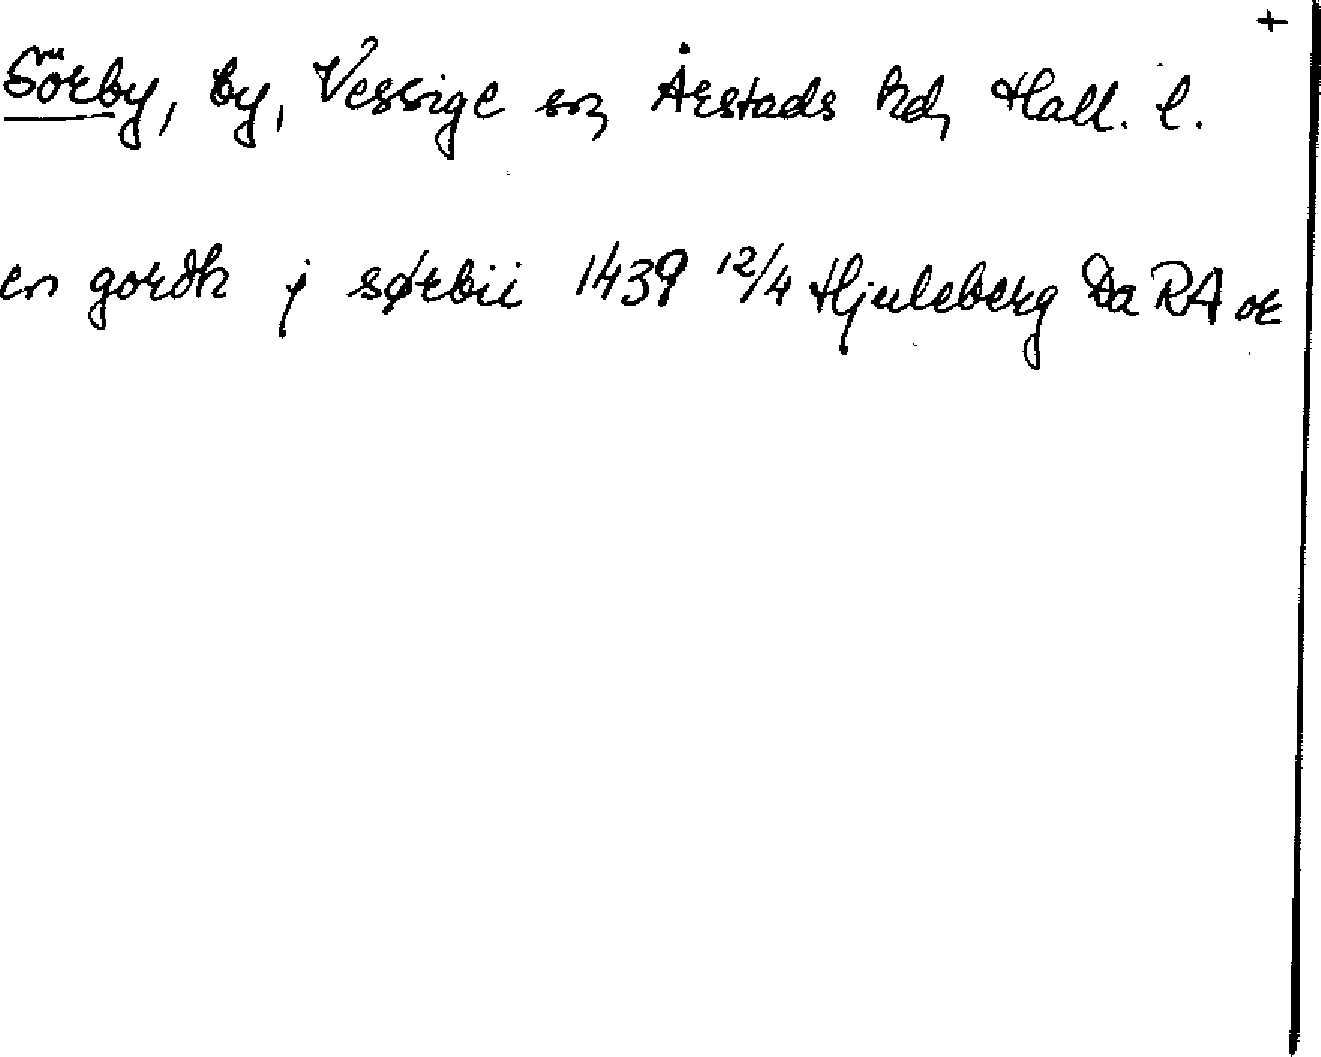 +
Sörby, by, Vessige sn, Årstads hd, Hall. l.
en gordh j sørbii 1439 12/4 Hjuleberg Da RA or